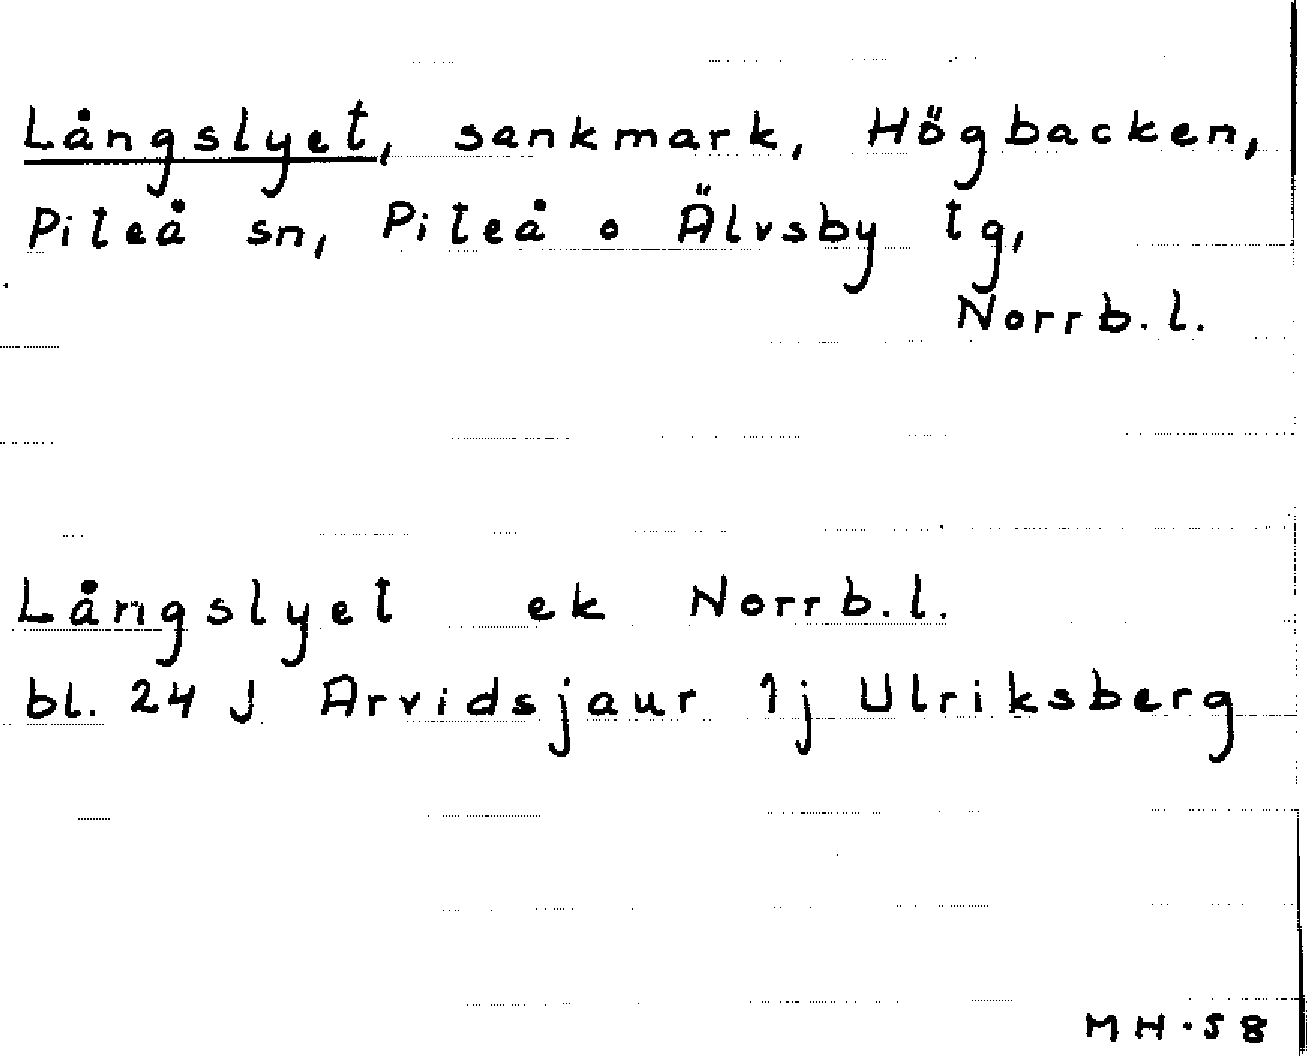 Långslyet, sankmark, Högbacken,
Piteå sn, Piteå o Älvsby tg,
Norrb.l.
Långslyet ek Norrb.l.
bl. 24 J Arvidsjaur 1j Ulriksberg
MH-58